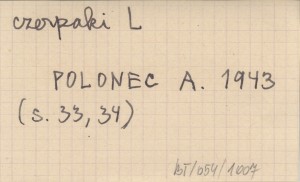 czerpaki L
POLONEC A. 1943
(s. 33, 34)
bT/054/1007